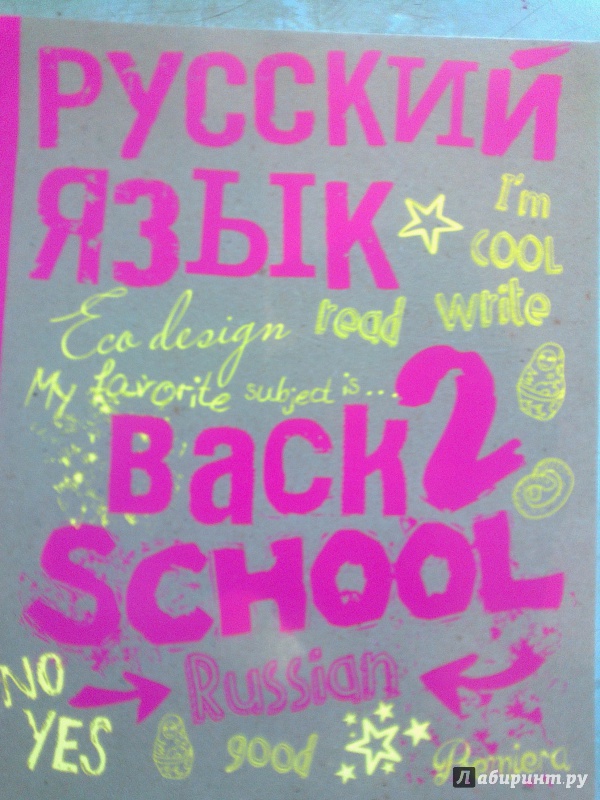 РУССКИЙ
ЯЗЫК
I'm
COOL
Eco design read write
My favorite subject is...
Back 2
SCHOOL
NO
YES
Russian
good
Premiera
Лабиринт.ру